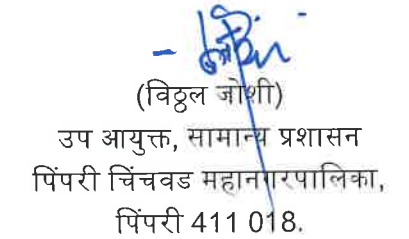 (विठ्ठल जोशी)
उप आयुक्त, सामान्य प्रशासन
पिंपरी चिंचवड महानगरपालिका,
पिंपरी 411 018.